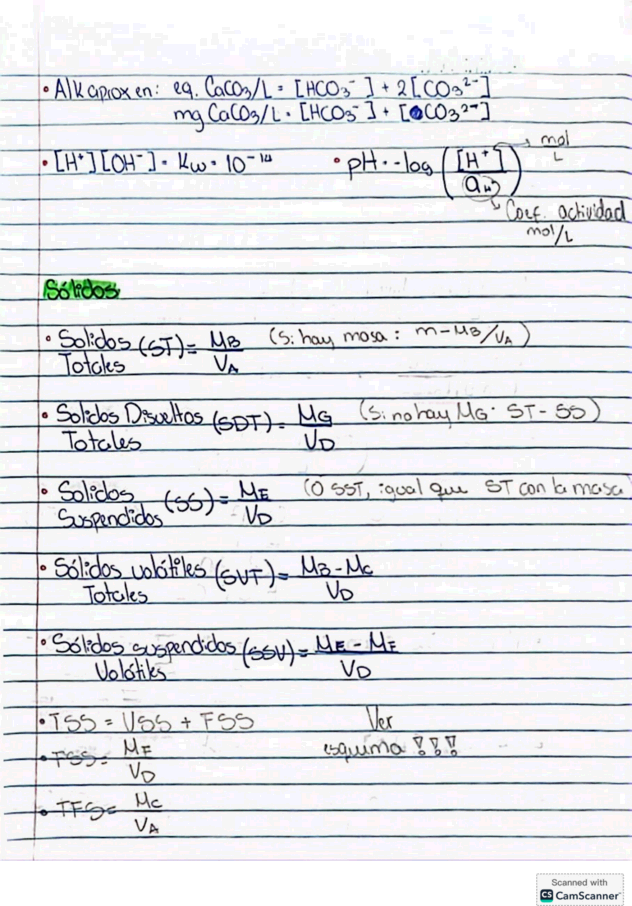 • Alk aprox en: eq. CaCO₃/L = [HCO₃⁻] + 2[CO₃²⁻]
mg CaCO₃/L = [HCO₃⁻] + [CO₃²⁻]
• [H⁺][OH⁻] = Kw = 10⁻¹⁴ • pH = -log ([H⁺]/a_H) mol/L
Coef. actividad
mol/L
Sólidos
• Solidos Totales (ST) = M_B/V_A (Si hay masa: m - M_B/V_A)
• Solidos Disueltos Totales (SDT) = M_G/V_D (Si no hay M_G = ST - SS)
• Solidos Suspendidos (SS) = M_E/V_D (O SST, igual que ST con la masa
• Sólidos volátiles Totales (SVT) = M_B - M_C/V_D
• Sólidos suspendidos Volátiles (SSV) = M_E - M_F/V_D
• TSS = VSS + FSS Ver
• FSS = M_F/V_D esquema !!!
• TFS = M_C/V_A
Scanned with
CS CamScanner